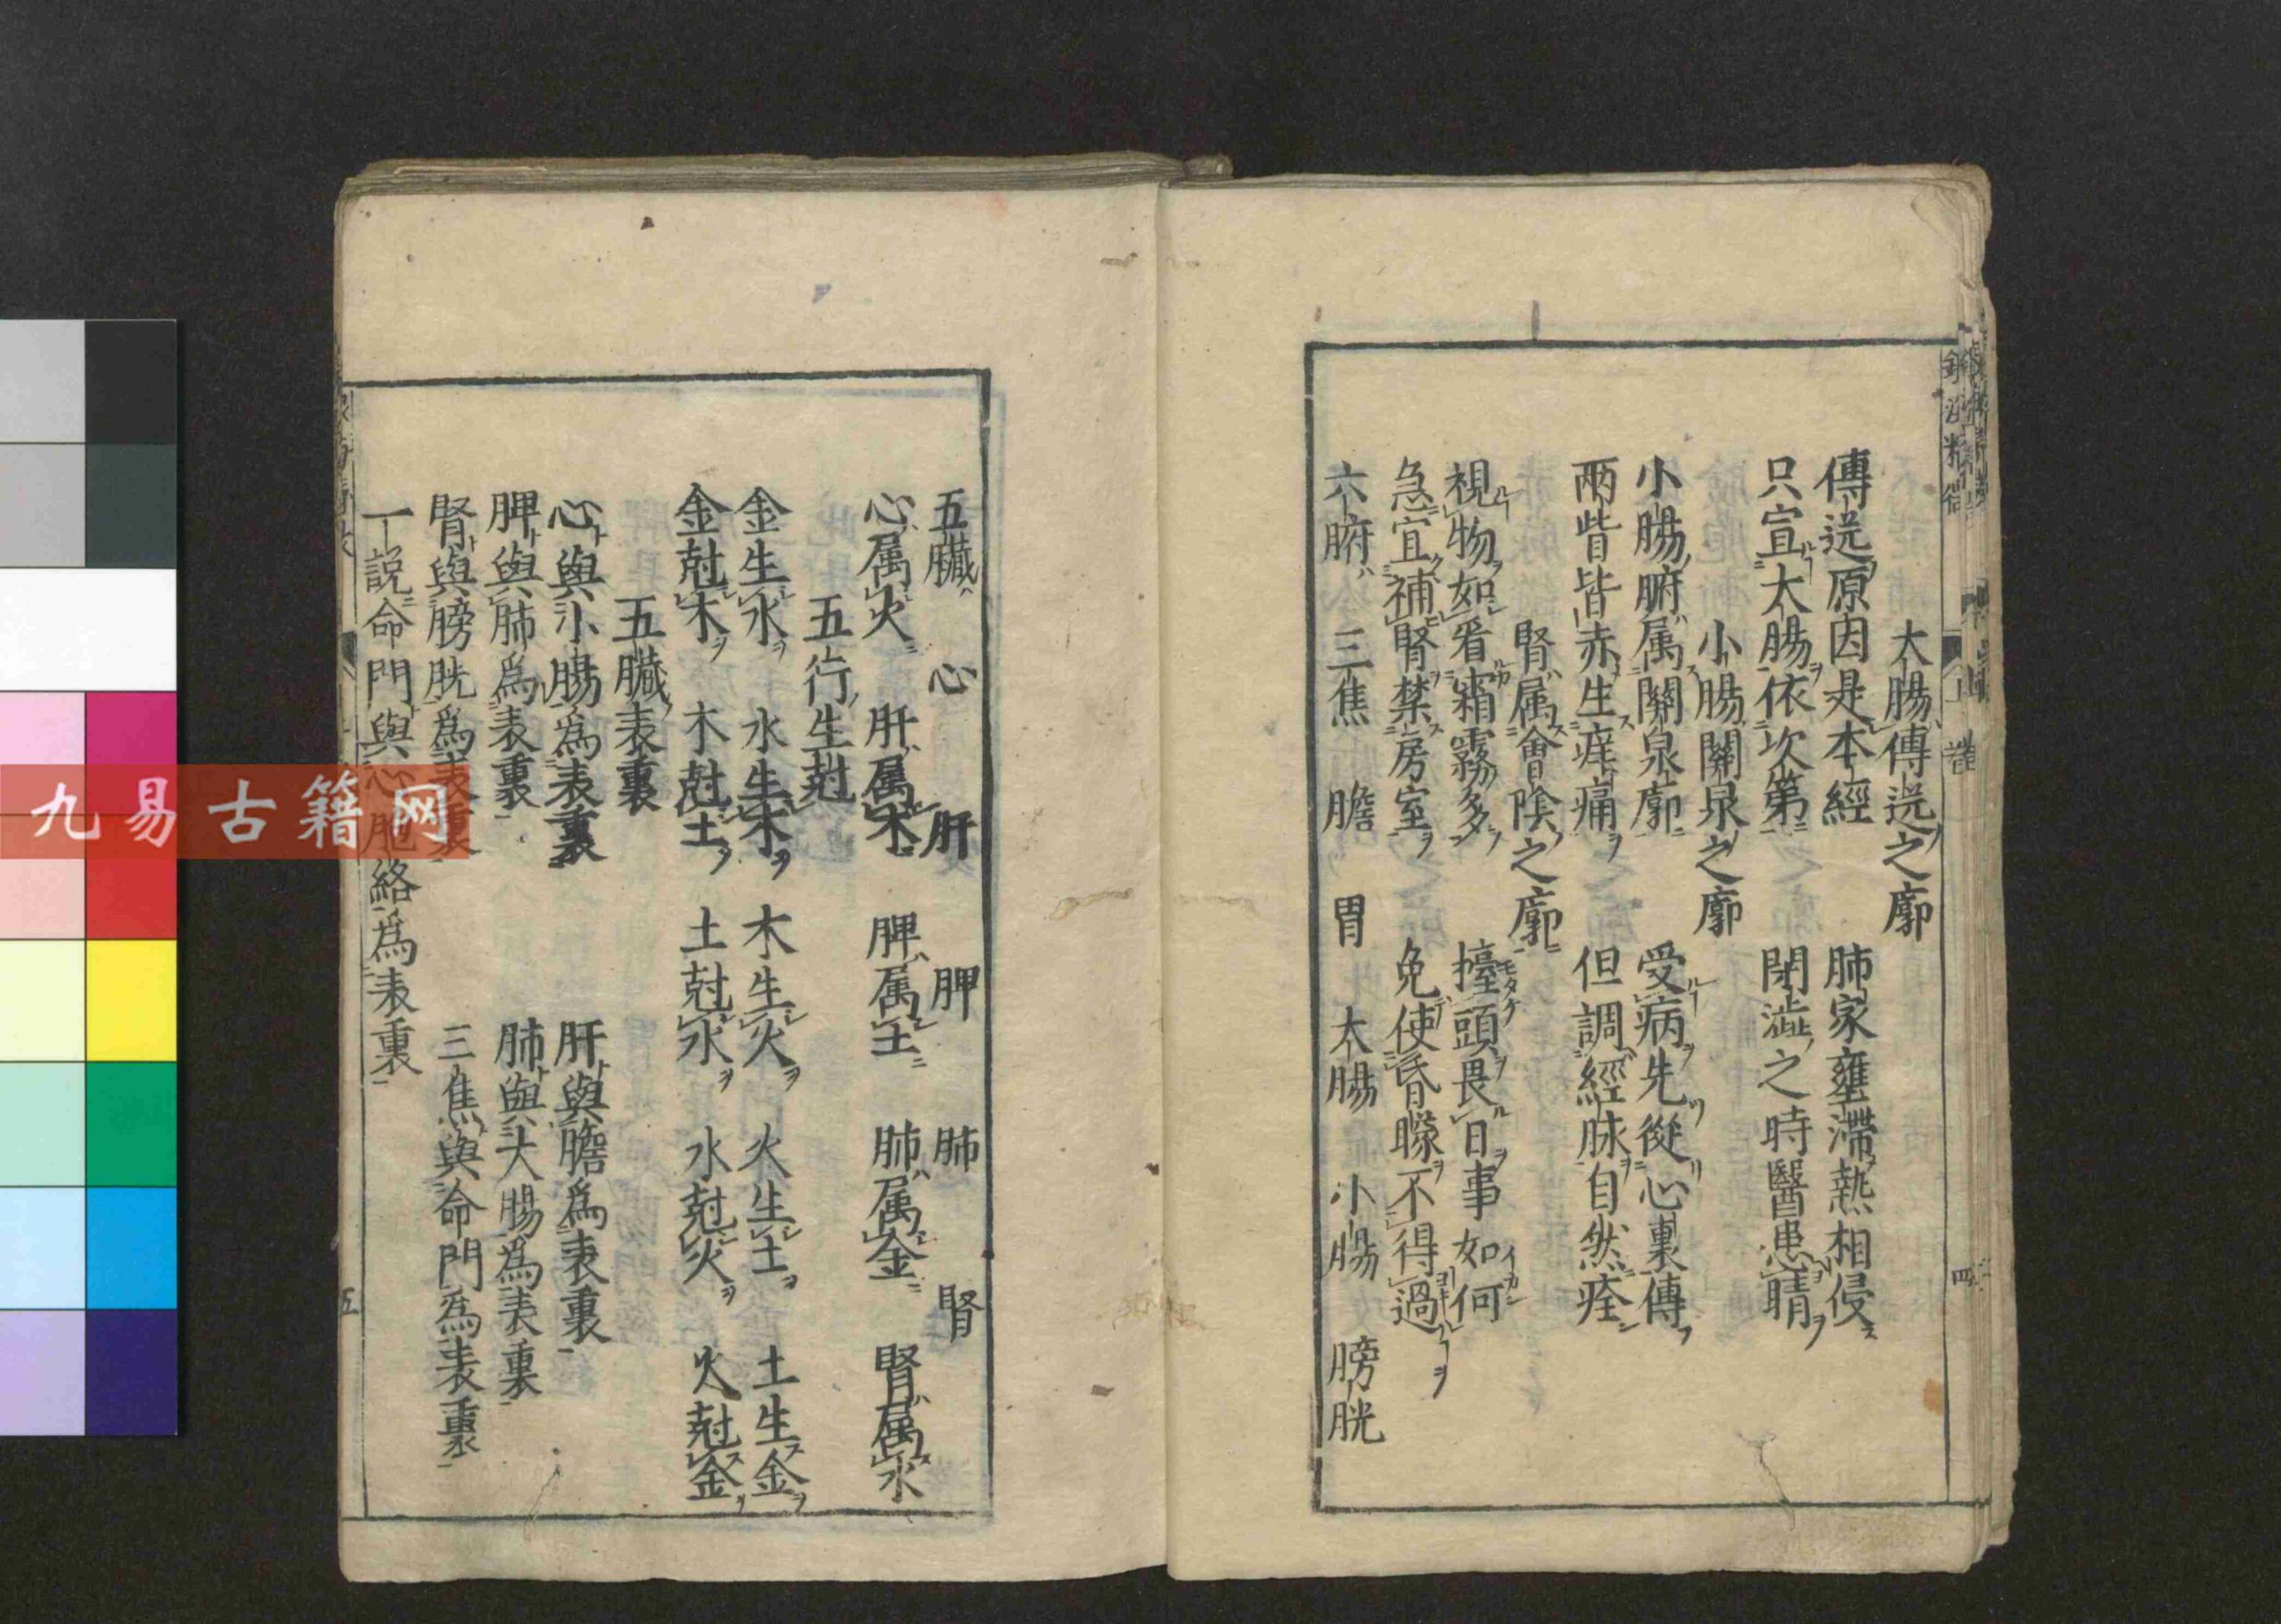 大腸傳送之廓
傳送原因是本經　肺家壅滯熱相侵
只宜大腸依次第　閉澁之時醫患睛
小腸關泉之廓
小腸腑属關泉廓　受病先從心裏傳
兩眥皆赤生痒痛　但調經脉自然痊
腎属會陰之廓
視物如看霜霧多　擡頭畏日事如何
急宜補腎禁房室　免使昏矇不得過
六腑　三焦　膽　胃　大腸　小腸　膀胱
四
五臟　心　肝　脾　肺　腎
心属火　肝属木　脾属土　肺属金　腎属水
五行生尅
金生水　水生木　木生火　火生土　土生金
金尅木　木尅土　土尅水　水尅火　火尅金
五臟表裏
心與小腸為表裏　肝與膽為表裏
脾與肺為表裏　肺與大腸為表裏
腎與膀胱為表裏　三焦與命門為表裏
一説命門與心胞絡為表裏
五
九易古籍网